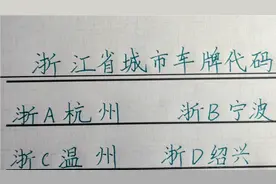 浙江省城市车牌代码
浙A杭州 浙B宁波
浙C温州 浙D绍兴